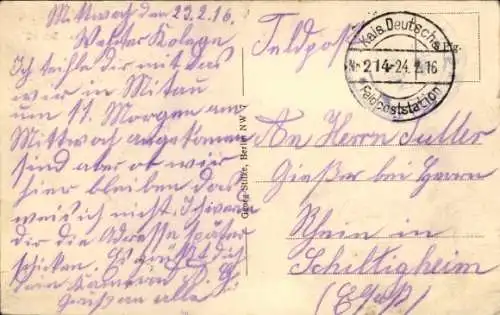 Mittwoch den 23.2.16.
Werther Kolege
Ich teihle dir mit das
wir in Mitau
um 11. Morgen am
Mittwoch angekommen
sind aber ob wir
hier bleiben das
weis ich nicht. Ich werde
dir die Adresse später
schicken. Es grüßt dich
dein Kamerad
Gruß an alle
Georg Stilke, Berlin NW 7
Feldpost
Kais. Deutsche
Nr. 214 - 24.2.16
Feldpoststation
An Herrn Sutter
Gießer bei Herrn
Rhein in
Schiltigheim
(Elsaß)